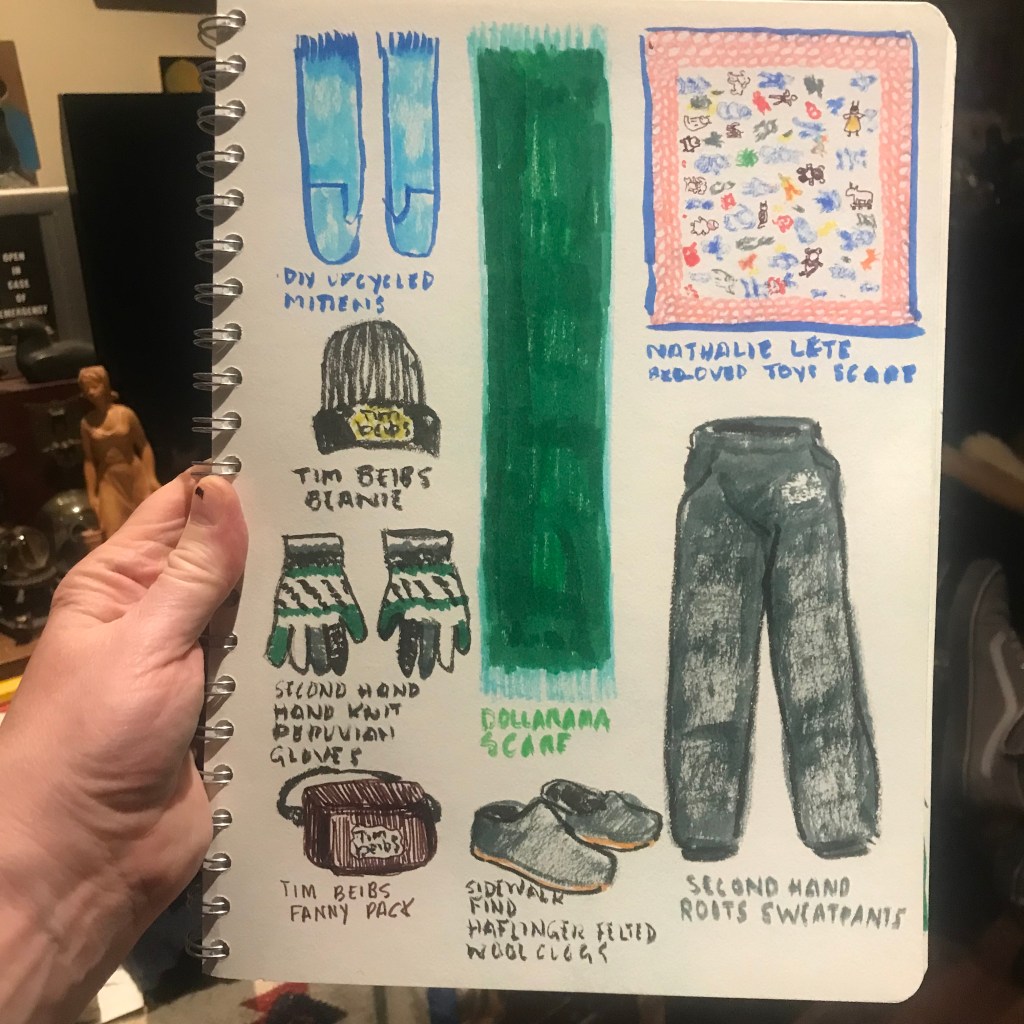 OPEN
IN
CASE
OF
EMERGENCY
DIY UPCYCLED
MITTENS
NATHALIE LÉTE
BELOVED TOYS SCARF
TIM
BEIBS
TIM BEIBS
BEANIE
SECOND HAND
HAND KNIT
PERUVIAN
GLOVES
DOLLARAMA
SCARF
TIM
BEIBS
TIM BEIBS
FANNY PACK
SIDEWALK
FIND
HAFLINGER FELTED
WOOL CLOGS
SECOND HAND
ROOTS SWEATPANTS